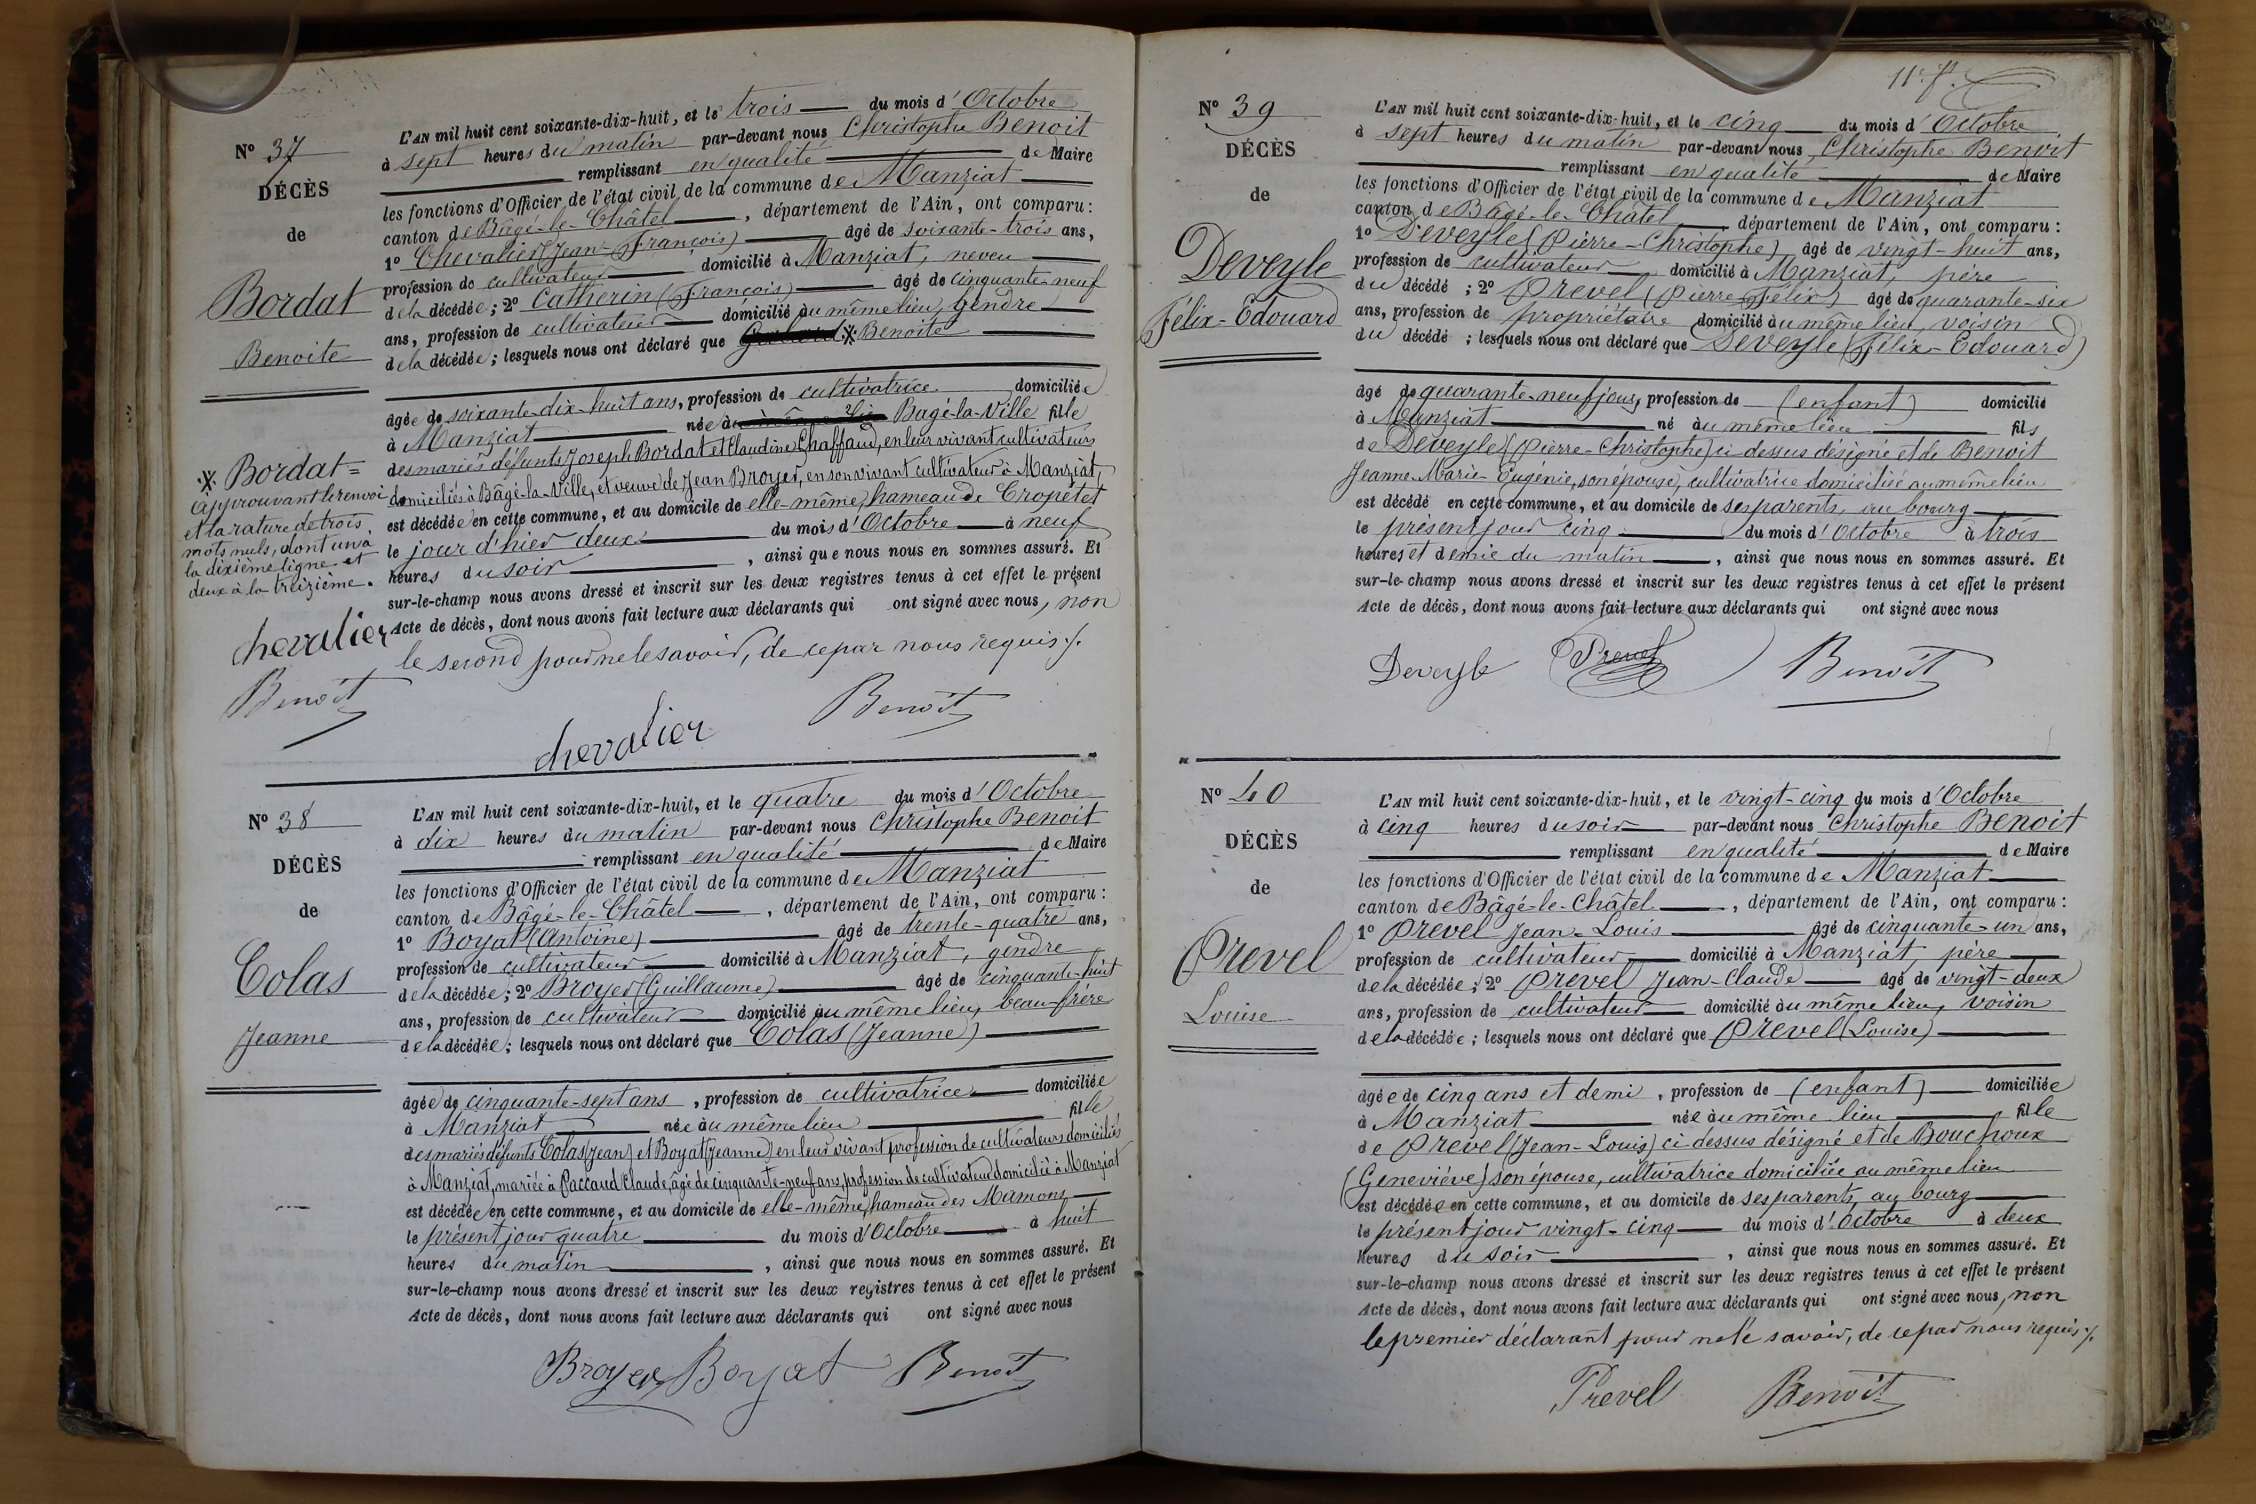 N° 37
DÉCÈS
de
Bordat
Benoite
L'AN mil huit cent soixante-dix-huit, et le trois du mois d'Octobre
à sept heures du matin par-devant nous Christophe Benoit
remplissant en qualité de Maire
les fonctions d'Officier de l'état civil de la commune de Manziat
canton de Bâgé-le-Châtel, département de l'Ain, ont comparu :
1° Chevalier (Jean-François) âgé de soixante-trois ans,
profession de cultivateur domicilié à Manziat, neveu
de la décédée ; 2° Catherin (François) âgé de cinquante-neuf
ans, profession de cultivateur domicilié au même lieu, gendre
de la décédée ; lesquels nous ont déclaré que Benoite
âgée de soixante-dix-huit ans, profession de cultivatrice domiciliée
à Manziat née à Bagé-la-Ville fille
des mariés défunts Joseph Bordat et Claudine Chaffaud, en leur vivant cultivateurs
domiciliés à Bâgé-la-Ville, et veuve de Jean Broyer, en son vivant cultivateur à Manziat,
est décédée en cette commune, et au domicile de elle-même, hameau de Cropetet
le jour d'hier deux du mois d'Octobre à neuf
heures du soir, ainsi que nous nous en sommes assuré. Et
sur-le-champ nous avons dressé et inscrit sur les deux registres tenus à cet effet le présent
Acte de décès, dont nous avons fait lecture aux déclarants qui ont signé avec nous, non
le second pour ne le savoir, de ce par nous requis ./.
Bordat =
approuvant le renvoi
et la rature de trois
mots nuls, dont un à
la dixième ligne et
deux à la treizième.
chevalier
Benoît
chevalier
Benoît
N° 38
DÉCÈS
de
Colas
Jeanne
L'AN mil huit cent soixante-dix-huit, et le quatre du mois d'Octobre
à dix heures du matin par-devant nous Christophe Benoit
remplissant en qualité de Maire
les fonctions d'Officier de l'état civil de la commune de Manziat
canton de Bâgé-le-Châtel, département de l'Ain, ont comparu :
1° Boyat (Antoine) âgé de trente-quatre ans,
profession de cultivateur domicilié à Manziat, gendre
de la décédée ; 2° Broyer (Guillaume) âgé de cinquante-huit
ans, profession de cultivateur domicilié au même lieu, beau-frère
de la décédée ; lesquels nous ont déclaré que Colas (Jeanne)
âgée de cinquante-sept ans, profession de cultivatrice domiciliée
à Manziat née au même lieu fille
des mariés défunts Colas (Jean) et Boyat (Jeanne) en leur vivant profession de cultivateurs domiciliés
à Manziat, mariée à Paccaud Claude, âgé de cinquante-neuf ans, profession de cultivateur domicilié à Manziat
est décédée en cette commune, et au domicile de elle-même, hameau des Mamons
le présent jour quatre du mois d'Octobre à huit
heures du matin, ainsi que nous nous en sommes assuré. Et
sur-le-champ nous avons dressé et inscrit sur les deux registres tenus à cet effet le présent
Acte de décès, dont nous avons fait lecture aux déclarants qui ont signé avec nous
Broyer Boyat Benoît
11e f.
N° 39
DÉCÈS
de
Deveyle
Félix-Edouard
L'AN mil huit cent soixante-dix-huit, et le cinq du mois d'Octobre
à sept heures du matin par-devant nous Christophe Benoit
remplissant en qualité de Maire
les fonctions d'Officier de l'état civil de la commune de Manziat
canton de Bâgé-le-Châtel département de l'Ain, ont comparu :
1° Deveyle (Pierre-Christophe) âgé de vingt-huit ans,
profession de cultivateur domicilié à Manziat, père
du décédé ; 2° Prevel (Pierre-Félix) âgé de quarante-six
ans, profession de propriétaire domicilié au même lieu, voisin
du décédé ; lesquels nous ont déclaré que Deveyle (Félix-Edouard)
âgé de quarante-neuf jours, profession de (enfant) domicilié
à Manziat né au même lieu fils
de Deveyle (Pierre-Christophe) ci-dessus désigné et de Benoit
Jeanne-Marie-Eugénie, son épouse, cultivatrice domiciliée au même lieu
est décédé en cette commune, et au domicile de ses parents, au bourg
le présent jour cinq du mois d'Octobre à trois
heures et demie du matin, ainsi que nous nous en sommes assuré. Et
sur-le-champ nous avons dressé et inscrit sur les deux registres tenus à cet effet le présent
Acte de décès, dont nous avons fait lecture aux déclarants qui ont signé avec nous
Deveyle Prevel Benoît
N° 40
DÉCÈS
de
Prevel
Louise
L'AN mil huit cent soixante-dix-huit, et le vingt-cinq du mois d'Octobre
à cinq heures du soir par-devant nous Christophe Benoit
remplissant en qualité de Maire
les fonctions d'Officier de l'état civil de la commune de Manziat
canton de Bâgé-le-Châtel, département de l'Ain, ont comparu :
1° Prevel Jean-Louis âgé de cinquante-un ans,
profession de cultivateur domicilié à Manziat, père
de la décédée ; 2° Prevel Jean-Claude âgé de vingt-deux
ans, profession de cultivateur domicilié au même lieu, voisin
de la décédée ; lesquels nous ont déclaré que Prevel (Louise)
âgée de cinq ans et demi, profession de (enfant) domiciliée
à Manziat née au même lieu fille
de Prevel (Jean-Louis) ci dessus désigné et de Bouchoux
(Geneviève) son épouse, cultivatrice domiciliée au même lieu
est décédée en cette commune, et au domicile de ses parents, au bourg
le présent jour vingt-cinq du mois d'Octobre à deux
heures du soir, ainsi que nous nous en sommes assuré. Et
sur-le-champ nous avons dressé et inscrit sur les deux registres tenus à cet effet le présent
Acte de décès, dont nous avons fait lecture aux déclarants qui ont signé avec nous, non
le premier déclarant pour ne le savoir, de ce par nous requis ./.
Prevel Benoît